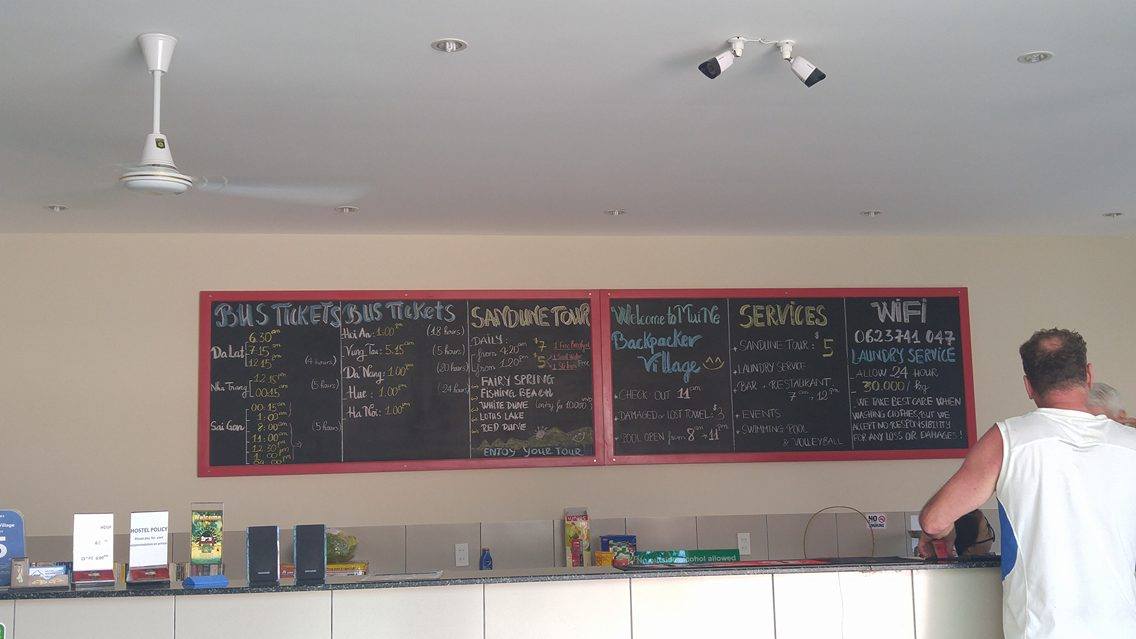 BUS TICKETS
Da Lat
6.30am
7.15am
12.15pm
(4 hours)
Nha Trang
12.15pm
00:15am
(5 hours)
Sai Gon
00:15am
1:00am
8:00am
11:00am
12.30pm
(5 hours)
BUS TICKETS
Hoi An: 1:00pm (18 hours)
Vung Tau: 5:15am (5 hours)
Da Nang: 1.00pm (20 hours)
Hue: 1.00pm (24 hours)
Ha Noi: 1.00pm
SANDUNE TOUR
DAILY:
from 4:20am $7 1 Free Breakfast
from 1:20pm $5
- FAIRY SPRING
- FISHING BEACH
- WHITE DUNE
- LOTUS LAKE
- RED DUNE
ENJOY YOUR TOUR
Welcome to Mui Ne
Backpacker
Village
+ CHECK OUT 11am
+ DAMAGED or LOST TOWEL: $3
+ POOL OPEN from 8am → 11pm
SERVICES
+ SANDUNE TOUR: $5
+ LAUNDRY SERVICE
+ BAR + RESTAURANT
7am - 12pm
+ EVENTS
+ SWIMMING POOL
& VOLLEYBALL
WiFi
0623741 047
LAUNDRY SERVICE
- ALLOW 24 HOUR
- 30.000 / kg
- WE TAKE BEST CARE WHEN
WASHING CLOTHES, BUT WE
ACCEPT NO RESPONSIBILITY
FOR ANY LOSS OR DAMAGES!
Village
5
HOSTEL POLICY
Welcome
No outside alcohol allowed
NO SMOKING